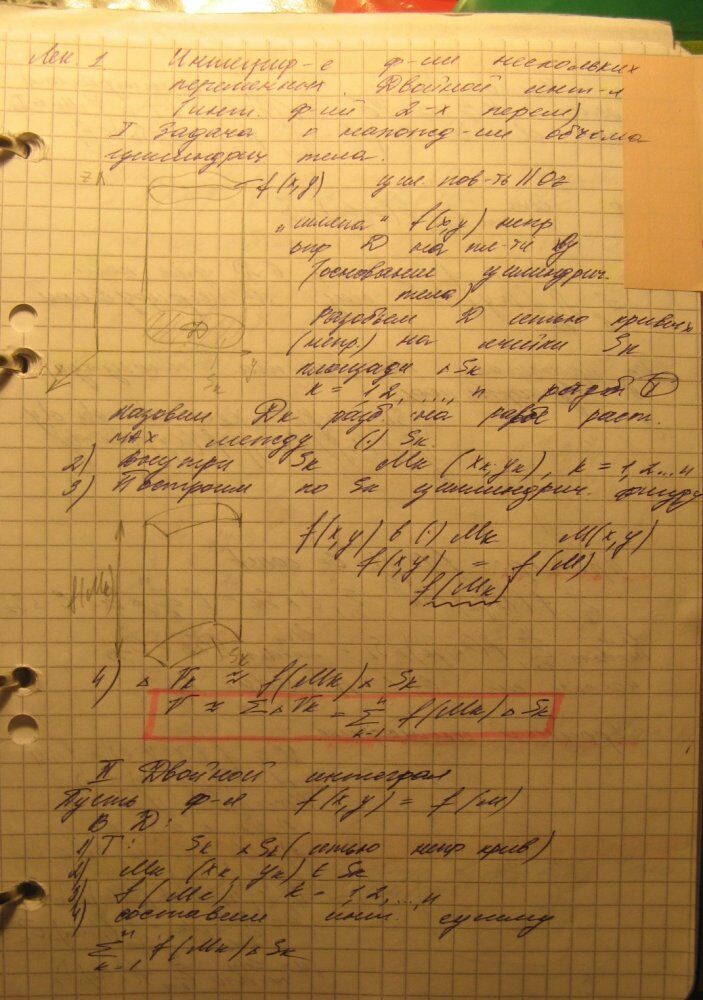 Лек. 1 Интегрир-е ф-ий нескольких
переменных. Двойной инт-л
(инт. ф-ий 2-х перем)
I Задача о нахожд-ии объёма
цилиндрич тела.
z f(x,y) цил. пов-ть || Oz
„шляпа“ f(x,y) непр
огр D на пл-ти xy
(основание цилиндрич.
тела)
Разобьём D сетью кривых
(непр.) на ячейки Sk
площади ΔSk
k = 1, 2, ..., n T
D
y
Sk
x
назовём Dk раст.
MAX между (·) Sk.
2) Внутри Sk Mk (xk; yk), k = 1, 2...n
3) Построим по Sk цилиндрич. фигуру
f(x,y) в (·) Mk M(x,y)
f(x,y) = f(M)
f(Mk)
f(Mk)
Sk
4) ΔVk ≈ f(Mk) ΔSk
V ≈ ΣΔVk = Σ f(Mk) ΔSk
n
k=1
II Двойной интеграл
Пусть ф-я f(x,y) = f(M)
в D:
1) T: Sk ΔSk (сетью непр крив)
2) Mk (xk, yk) ∈ Sk
3) f(Mk) k = 1, 2, ..., n
4) составим инт. сумму
n
Σ f(Mk) ΔSk
k=1